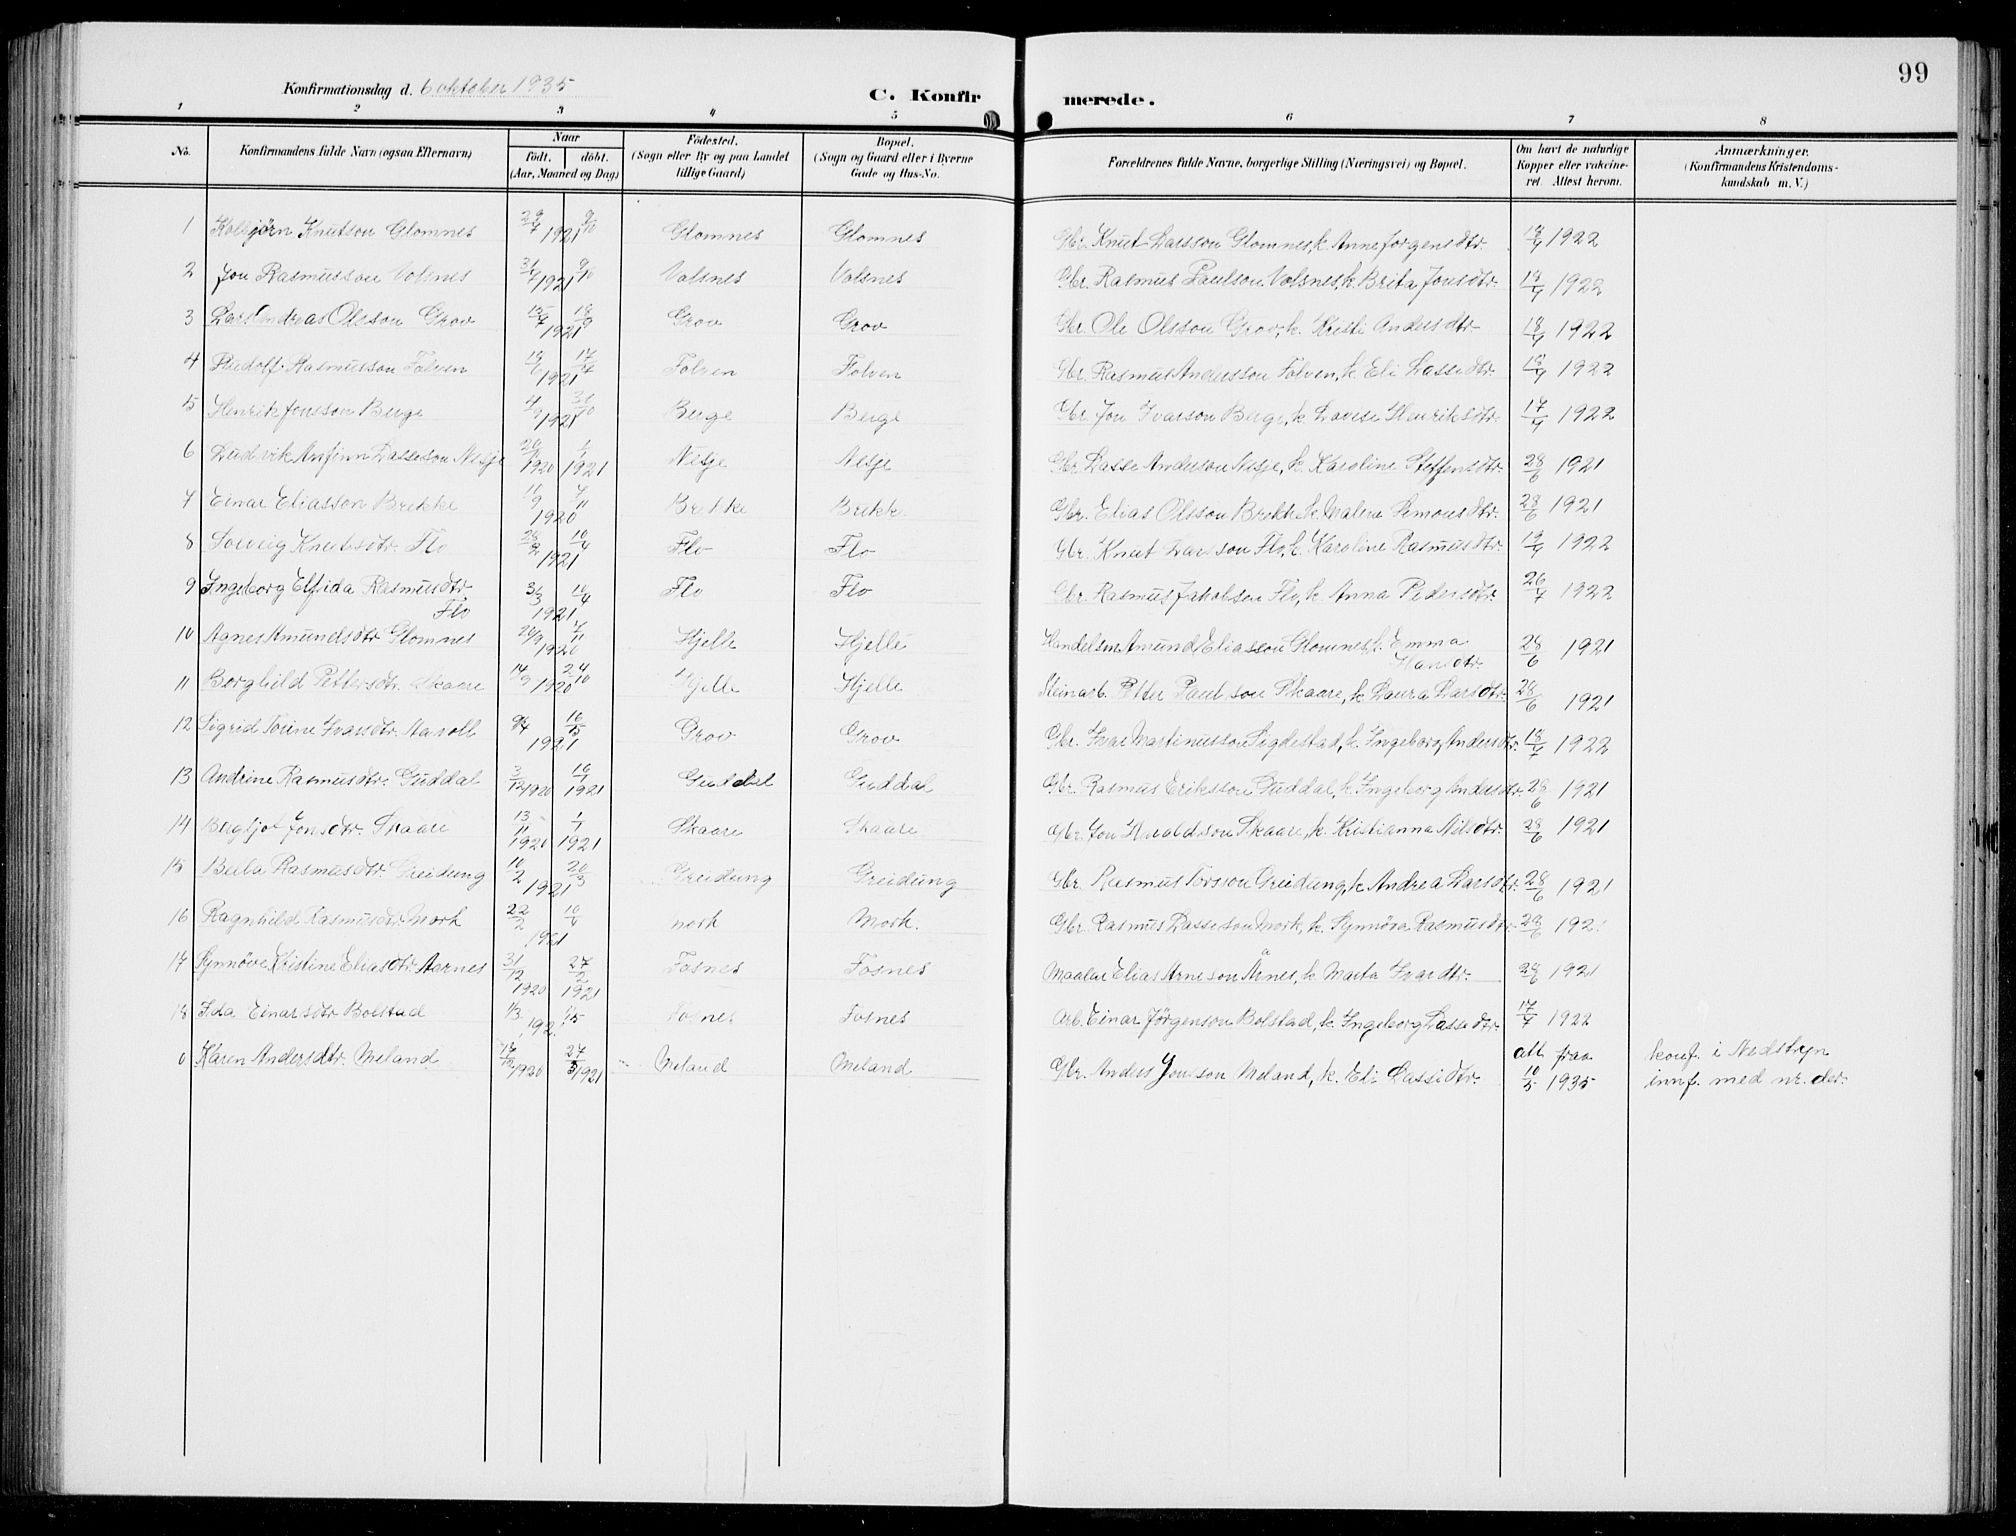 99
Konfirmationsdag d. 6 oktober 1935
C. Konfir merede.
1 2 3 4 5 6 7 8
No. Konfirmandens fulde Navn (ogsaa Efternavn) Naar födt. döbt. (Aar, Maaned og Dag) Födested. (Sogn eller By og paa Landet tillige Gaard) Bopæl. (Sogn og Gaard eller i Byerne Gade og Hus-No. Forældrenes fulde Navne, borgerlige Stilling (Næringsvei) og Bopæl. Om havt de naturlige Kopper eller vakcineret. Attest herom. Anmærkninger. (Konfirmandens Kristendomskundskab m. V.)
1 Kolbjörn Knutson Glomnes 29/7 1921 9/10 Glomnes Glomnes Gbr. Knut Lassson Glomnes, k. Anne Jorgensdtr. 18/7 1922
2 Jon Rasmusson Volsnes 31/7 1921 9/10 Volsnes Volsnes Gbr. Rasmus Paulson Volsnes, k. Brita Jonsdtr. 18/7 1922
3 Lars Andreas Olsson Grov 15/7 1921 18/9 Grov Grov Gbr. Ole Olsson Grov, k. Kristi Andersdtr. 18/7 1922
4 Rudolf Rasmusson Folven 19/6 1921 17/7 Folven Folven Gbr. Rasmus Andersson Folven, k. Eli Lassedtr. 18/7 1922
5 Henrik Jonsson Berge 4/9 1921 30/10 Berge Berge Gbr. Jon Ivarson Berge, k. Lovise Henriksdtr. 17/7 1922
6 Ludvik Anfinn Lasseson Nesje 1920 1/1 1921 Nesje Nesje Gbr. Lasse Anderson Nesje, k. Karoline Steffensdtr. 28/6 1921
7 Einar Eliasson Brekke 11/9 1920 7/11 Brekke Brekke Gbr. Elias Olsson Brekke, k. Malene Simonsdtr. 28/6 1921
8 Solveig Knutsdtr. Flo 28/2 1921 10/4 Flo Flo Gbr. Knut Larsson Flo, k. Karoline Rasmusdtr. 19/7 1922
9 Ingeborg Elfida Rasmusdtr. 3/3 1921 10/4 Flo Flo Gbr. Rasmus Jakobson Flo, k. Anna Pedersdtr. 26/7 1922
Flo
10 Agnes Amundsdtr Glomnes 26/9 1920 7/11 Hjelle Hjelle Handelsm. Amund Eliasson Glomnes, k. Emma 28/6 1921
Hansdtr.
11 Borghild Pettersdtr. Skaare 14/9 1920 24/10 Hjelle Hjelle Steinarb. Petter Paulson Skaare, k. Laura Larsdtr. 28/6 1921
12 Sigrid Ivarsdtr. 1921 16/5 Grov Grov Gbr. Ivar Martinusson Sigdestad, k. Ingeborg Andersdtr. 18/7 1922
13 Andrine Rasmusdtr. Guddal 3/12 1920 16/1 1921 Guddal Guddal Gbr. Rasmus Eriksson Guddal, k. Ingeborg Andersdtr. 28/6 1921
14 Bergljot Jonsdtr. Skaare 13/11 1920 1/1 1921 Skaare Skaare Gbr. Jon Haraldson Skaare, k. Kristianna Nilsdtr. 28/6 1921
15 Beba Rasmusdtr. Greidung 10/2 1921 20/3 Greidung Greidung Gbr. Rasmus Torsson Greidung, k. Andrea Larsdtr. 28/6 1921
16 Ragnhild Rasmusdtr. Mork 22/2 1921 10/4 Mork Mork. Gbr. Rasmus Lasseson Mork, k. Synnöve Rasmusdtr. 28/6 1921
17 Synnöve Kristine Eliasdtr. Aarnes 31/12 1920 27/2 1921 Fosnes Fosnes Maalar Elias Arneson Årnes, k. Marta Ivardtr. 28/6 1921
18 Ida Einarsdtr Bolstad 1/3 192 1/5 Fosnes Fosnes Arb. Einar Jörgenson Bolstad, k. Ingeborg Lassedtr. 17/7 1922
0 Karen Andersdtr. Meland 17/12 1920 27/3 1921 Meland Meland Gbr. Anders Jonsson Meland, k. Eli Lassedtr. att. fraa 10/5 1935 konf. i Nedstryn
innf. med nr. der.